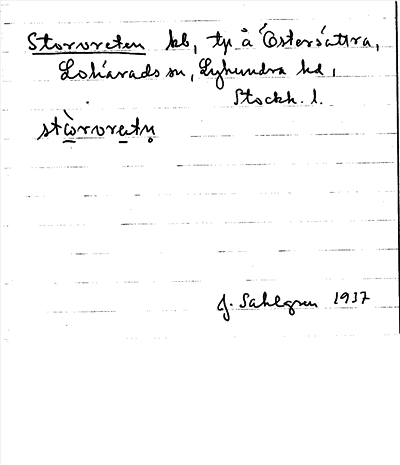 Storvreten kb, tp å Östersättra,
Lohärads sn, Lyhundra hd,
Stockh. l.
stòrvretn̥
J. Sahlgren 1937